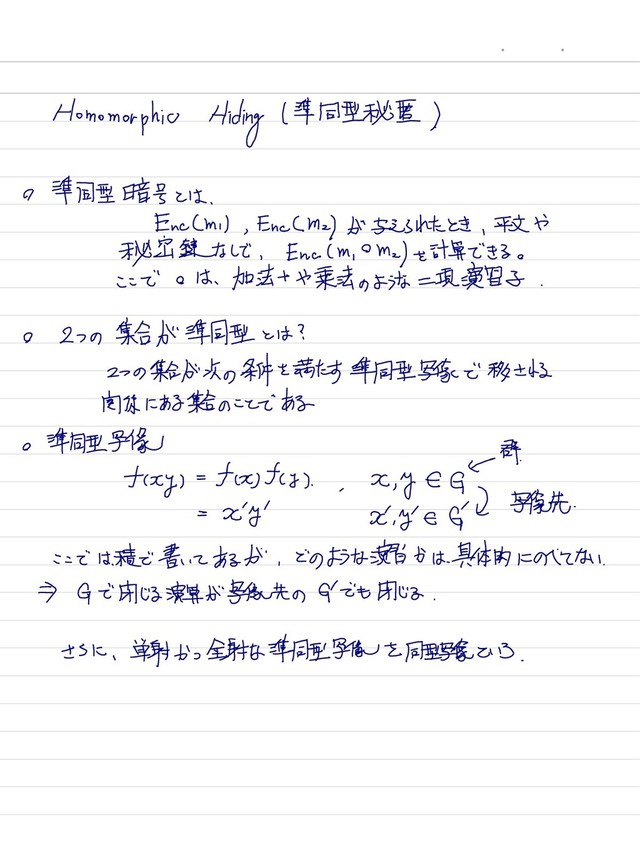 Homomorphic Hiding (準同型秘匿)
○ 準同型暗号とは、
Enc(m₁), Enc(m₂) が与えられたとき, 平文や
秘密鍵なしで, Enc(m₁○m₂)を計算できる。
ここで ○ は、加法+や乗法のような二項演習子.
○ 2つの集合が準同型とは?
2つの集合が次の条件を満たす準同型写像で移される
関係にある集合のことである
○ 準同型写像
f(xy) = f(x)f(y). , x,y ∈ G ← 群.
= x'y' x',y' ∈ G' 写像先.
ここでは積で書いてあるが, どのような演習かは具体的にのべてない.
⇒ Gで閉じる演算が写像先のG'でも閉じる.
さらに、単射かつ全射な準同型写像を同型写像という.